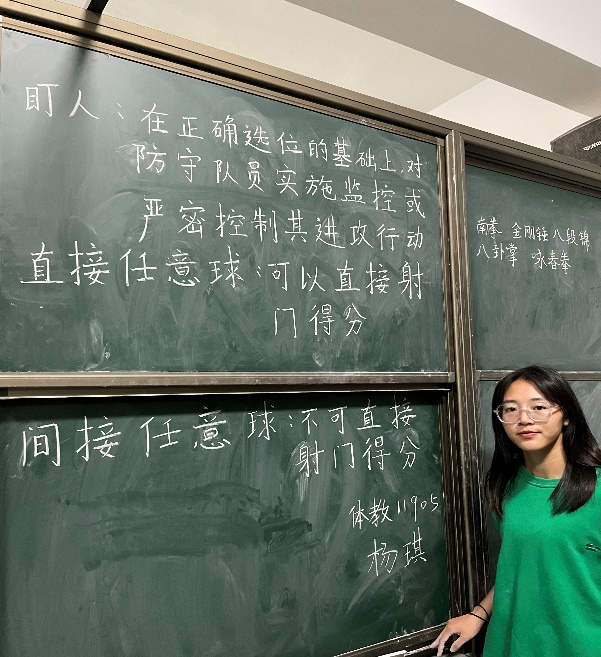 盯人：在正确选位的基础上，对
防守队员实施监控或
严密控制其进攻行动
直接任意球：可以直接射
门得分
间接任意球：不可直接
射门得分
体教11905
杨琪
南拳 金刚锤 八段锦
八卦掌 咏春拳